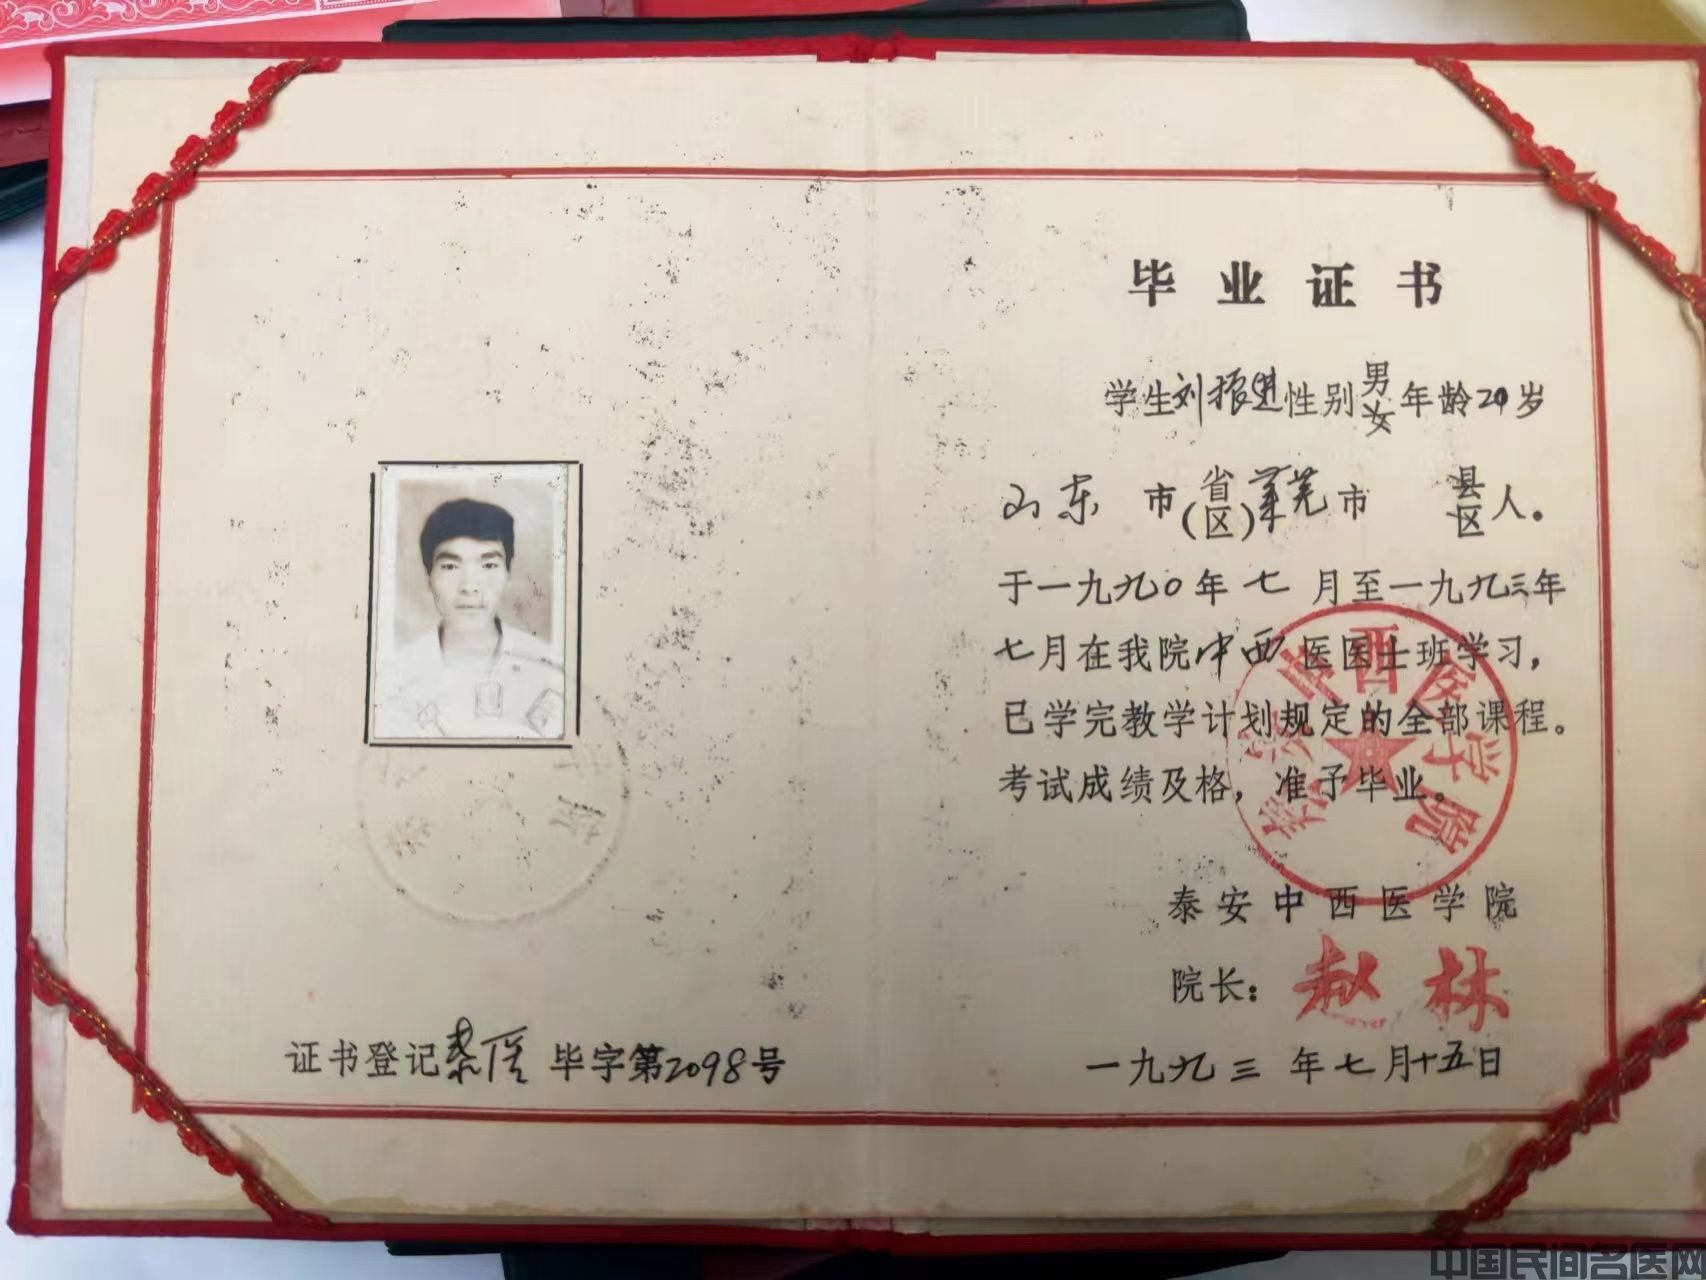 证书登记泰医毕字第2098号
毕业证书
学生刘振进性别男女年龄20岁
山东市省(区)莱芜市县区人。
于一九九〇年七月至一九九三年
七月在我院中西医医士班学习，
已学完教学计划规定的全部课程。
考试成绩及格，准予毕业。
泰安中西医学院
泰安中西医学院
院长：赵林
一九九三年七月十五日
中国民间名医网